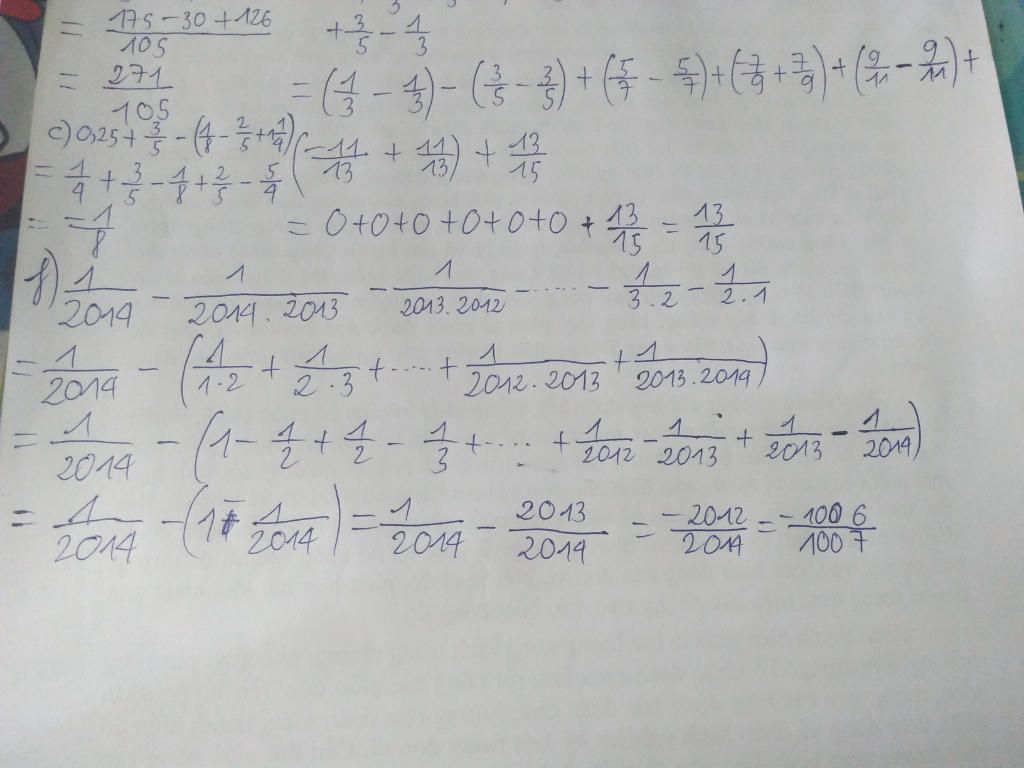 = \frac{175 - 30 + 126}{105}
+ \frac{3}{5} - \frac{1}{3}
= \frac{271}{105}
= (\frac{1}{3} - \frac{1}{3}) - (\frac{3}{5} - \frac{3}{5}) + (\frac{5}{7} - \frac{5}{7}) + (\frac{-7}{9} + \frac{7}{9}) + (\frac{9}{11} - \frac{9}{11}) +
c) 0,25 + \frac{3}{5} - (\frac{1}{8} - \frac{2}{5} + 1\frac{1}{4})
(\frac{-11}{13} + \frac{11}{13}) + \frac{13}{15}
= \frac{1}{4} + \frac{3}{5} - \frac{1}{8} + \frac{2}{5} - \frac{5}{4}
= \frac{-1}{8}
= 0+0+0+0+0+0 + \frac{13}{15} = \frac{13}{15}
f) \frac{1}{2014} - \frac{1}{2014.2013} - \frac{1}{2013.2012} - ..... - \frac{1}{3.2} - \frac{1}{2.1}
= \frac{1}{2014} - (\frac{1}{1.2} + \frac{1}{2.3} + ..... + \frac{1}{2012.2013} + \frac{1}{2013.2014})
= \frac{1}{2014} - (1 - \frac{1}{2} + \frac{1}{2} - \frac{1}{3} + ..... + \frac{1}{2012} - \frac{1}{2013} + \frac{1}{2013} - \frac{1}{2014})
= \frac{1}{2014} - (1 - \frac{1}{2014}) = \frac{1}{2014} - \frac{2013}{2014} = \frac{-2012}{2014} = \frac{-1006}{1007}